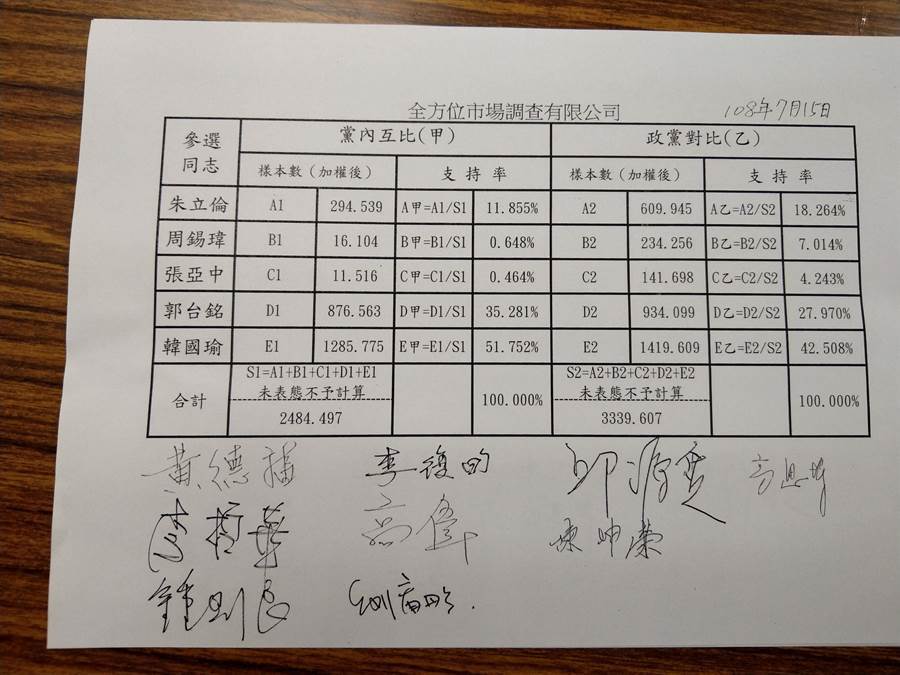 全方位市場調查有限公司 108年7月15日
參選同志 黨內互比(甲) 政黨對比(乙)
樣本數(加權後) 支持率 樣本數(加權後) 支持率
朱立倫 A1 294.539 A甲=A1/S1 11.855% A2 609.945 A乙=A2/S2 18.264%
周錫瑋 B1 16.104 B甲=B1/S1 0.648% B2 234.256 B乙=B2/S2 7.014%
張亞中 C1 11.516 C甲=C1/S1 0.464% C2 141.698 C乙=C2/S2 4.243%
郭台銘 D1 876.563 D甲=D1/S1 35.281% D2 934.099 D乙=D2/S2 27.970%
韓國瑜 E1 1285.775 E甲=E1/S1 51.752% E2 1419.609 E乙=E2/S2 42.508%
S1=A1+B1+C1+D1+E1 S2=A2+B2+C2+D2+E2
未表態不予計算 未表態不予計算
合計 100.000% 100.000%
2484.497 3339.607
黃德福 李復甸
高偉 陳坤榮